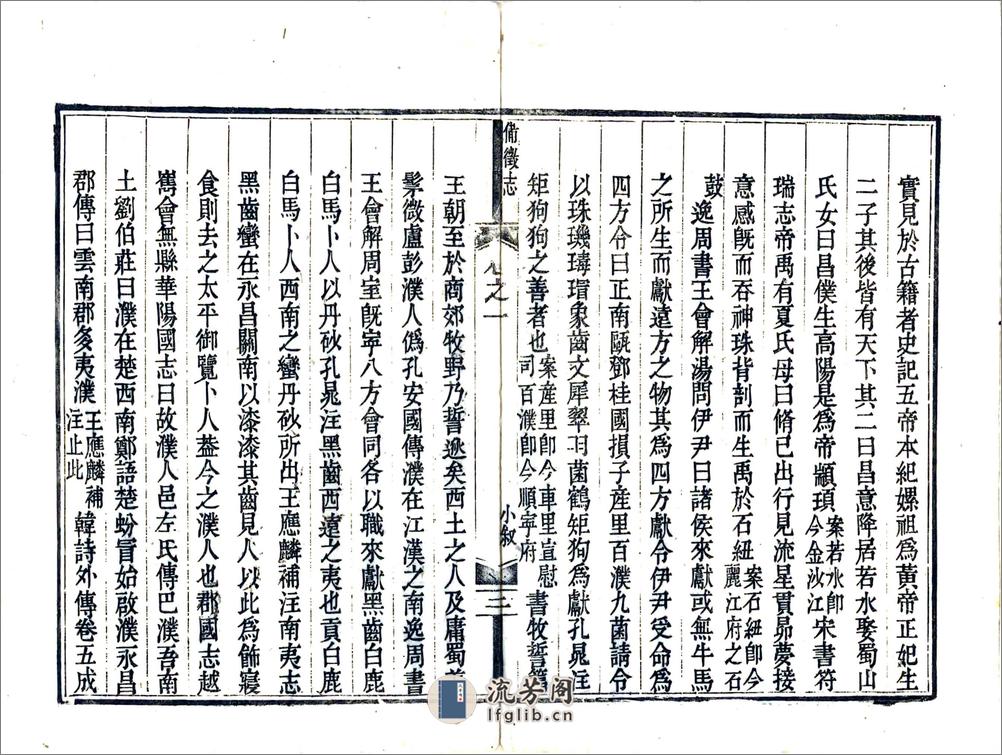 實見於古籍者史記五帝本紀嫘祖爲黃帝正妃生
二子其後皆有天下其二曰昌意降居若水娶蜀山
氏女曰昌僕生高陽是爲帝顓頊案若水卽今金沙江宋書符
瑞志帝禹有夏氏母曰脩己出行見流星貫昴夢接
意感旣而吞神珠背剖而生禹於石紐案石紐卽今麗江府之石
鼓逸周書王會解湯問伊尹曰諸侯來獻或無牛馬
之所生而獻遠方之物其爲四方獻令伊尹受命爲
四方令曰正南甌鄧桂國損子産里百濮九菌請令
以珠璣瑇瑁象齒文犀翠羽菌鶴矩狗爲獻孔晁注
矩狗狗之善者也案産里卽今車里宣慰司百濮卽今順寧府書牧誓篇
備徵志 卷之一 小叙 三
王朝至於商郊牧野乃誓逖矣西土之人及庸蜀羌
髳微盧彭濮人僞孔安國傳濮在江漢之南逸周書
王會解周室旣寧八方會同各以職來獻黑齒白鹿
白馬卜人以丹砂孔晁注黑齒西遠之夷也貢白鹿
白馬卜人西南之蠻丹砂所出王應麟補注南夷志
黑齒蠻在永昌關南以漆漆其齒見人以此爲飾寢
食則去之太平御覽卜人葢今之濮人也郡國志越
嶲會無縣華陽國志曰故濮人邑左氏傳巴濮吾南
土劉伯莊曰濮在楚西南鄭語楚蚡冒始啟濮永昌
郡傳曰雲南郡多夷濮王應麟補注止此韓詩外傳卷五成
流芳阁
lfglib.cn